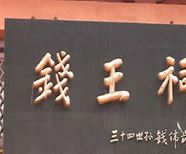 錢王祠
三十四世孙錢偉